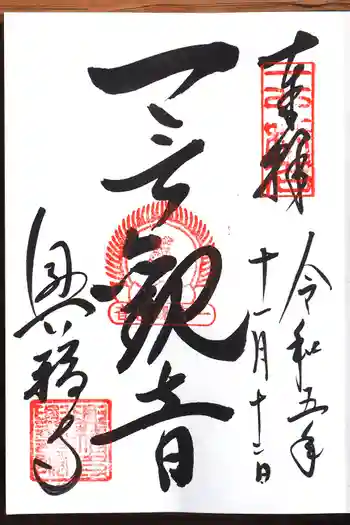 奉拝
令和五年
十一月十二日
一言観音
興福寺